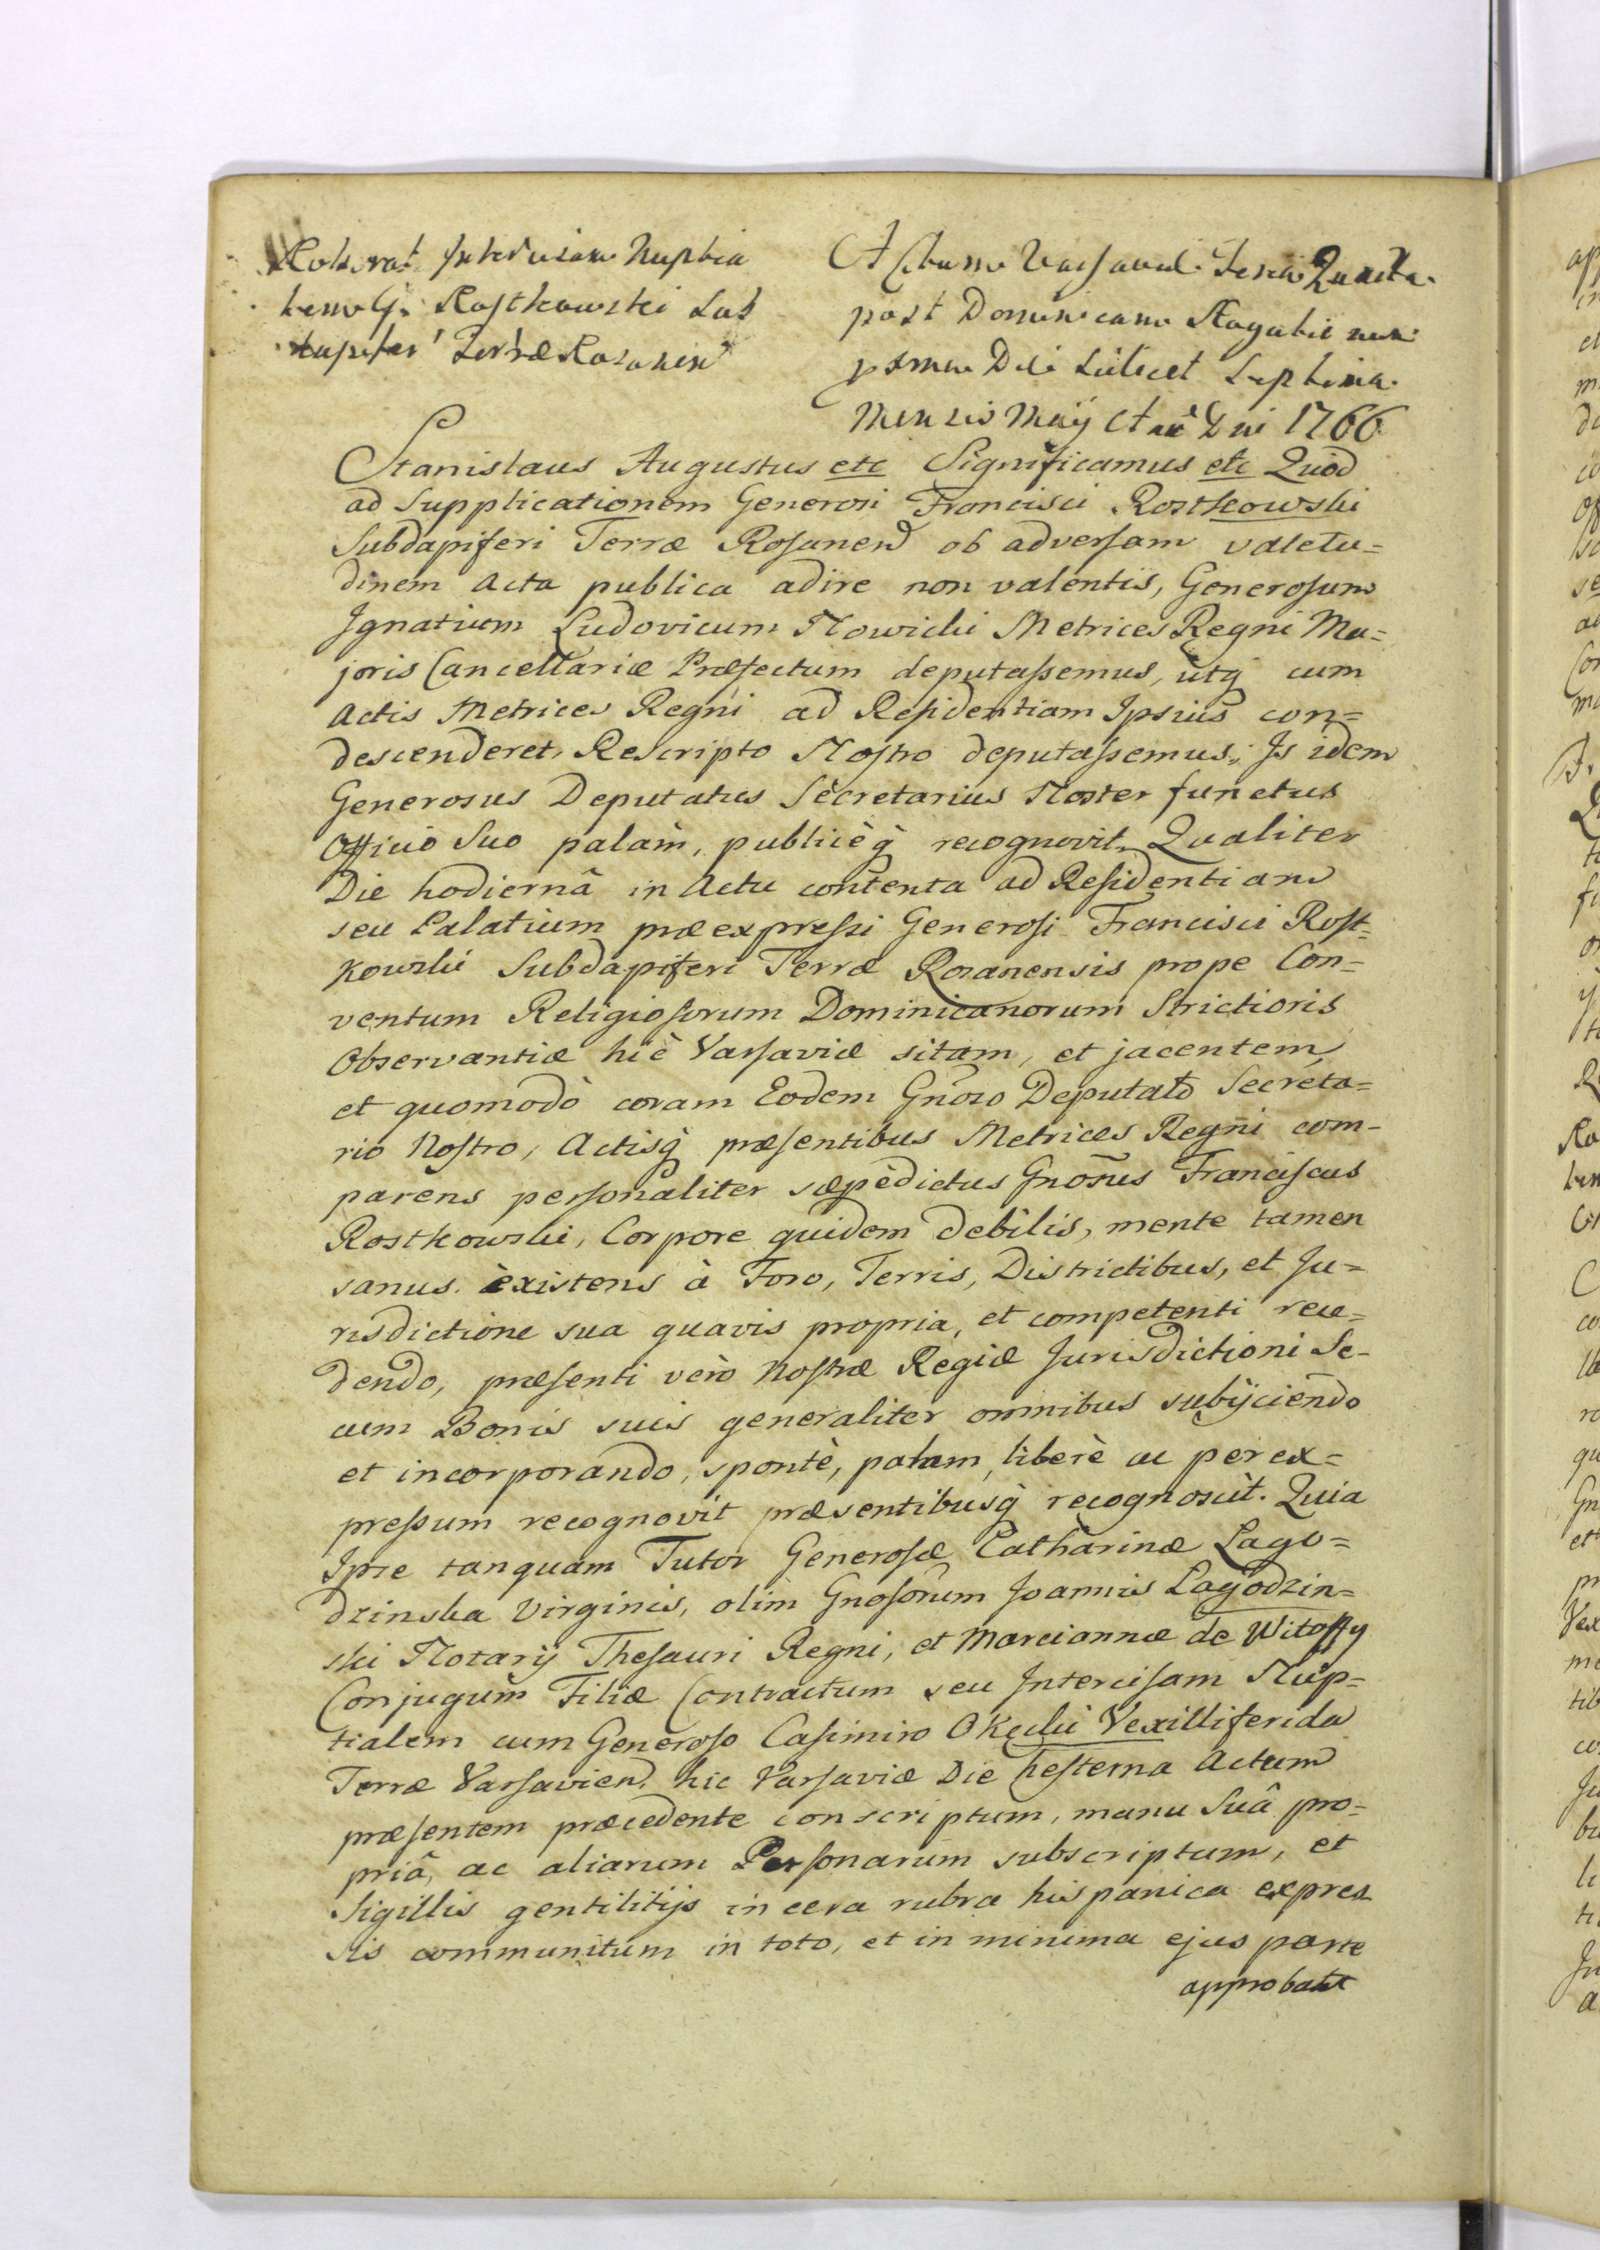 Roborat Intercisam Nuptia
lem G. Rostkowski Sub
dapifer Terræ Rozanen
Actum Varsaviæ Feria Quarta
post Dominicam Rogatio num
pxma Die scilicet Septima
Mensis Maÿ Añ Dni 1766
Stanislaus Augustus etc Significamus etc Quod
ad Supplicationem Generosi Francisci Rostkowski
Subdapiferi Terræ Rosanen ob adversam valetu=
dinem Acta publica adire non valentis, Generosum
Ignatium Ludovicum Nowicki Metrices Regni Ma=
joris Cancellariæ Præfectum deputassemus, utq cum
Actis Metrices Regni ad Residentiam Ipsius con=
descenderet, Rescripto Nostro deputassemus, Is idem
Generosus Deputatus Secretarius Noster functus
Officio Suo palàm, publicèq recognovit, Qualiter
Die hodiernâ in Actu contenta ad Residentiam
seu Palatium præexpressi Generosi Francisci Rost=
kowski Subdapiferi Terræ Rozanensis prope Con=
ventum Religiosorum Dominicanorum Strictioris
Observantiæ hìc Varsaviæ sitam, et jacentem,
et quomodò coram Eodem Gnoso Deputato Secreta=
rio Nostro, Actisq præsentibus Metrices Regni com-
parens personaliter sæpèdictus Gnosus Franciscus
Rostkowski, Corpore quidem debilis, mente tamen
sanus existens à Foro, Terris, Districtibus, et Ju=
risdictione sua quavis propria, et competenti rece=
dendo, præsenti verò Nostræ Regiæ Jurisdictioni Se-
cum Bonis suis generaliter omnibus subÿciendo
et incorporando, spontè, palam, liberè ac per ex=
pressum recognovit præsentibusq recognoscit. Quia
Ipse tanquam Tutor Generosæ Catharinæ Lago=
dzinska Virginis, olim Gnosorum Joannis Lagodzin=
ski Notarÿ Thesauri Regni, et Marciannæ de Witoffy
Conjugum Filiæ Contractum seu Intercisam Nup=
tialem cum Generoso Casimiro Okęcki Vexilliferida
Terræ Varsavien, hic Varsaviæ Die hesterna Actum
præsentem præcedente conscriptum, manu Suâ pro=
priâ, ac aliarum Personarum subscriptum, et
Sigillis gentilitÿs in cera rubra hispanica expres
sis communitum in toto, et in minima ejus parte
approbat